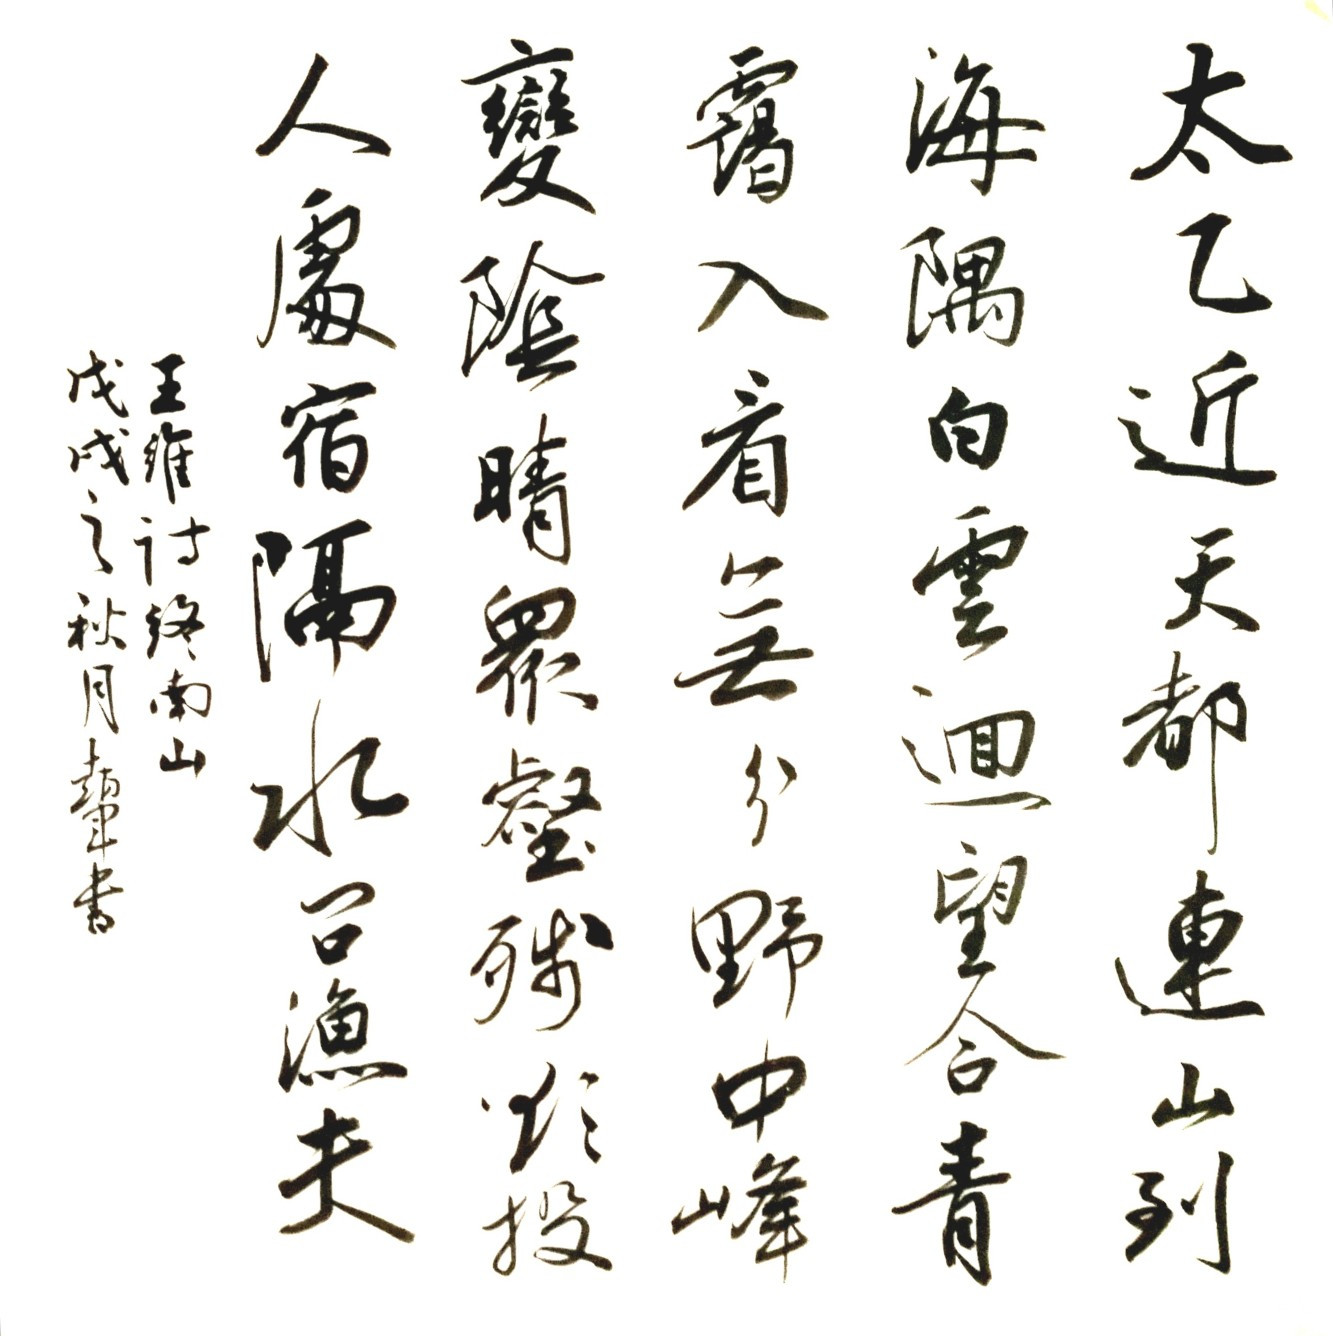 太乙近天都連山到
海隅白雲迴望合青
靄入看無分野中峰
變陰晴眾壑残欲投
人處宿隔水問漁夫
王維诗终南山
戊戌之秋月書